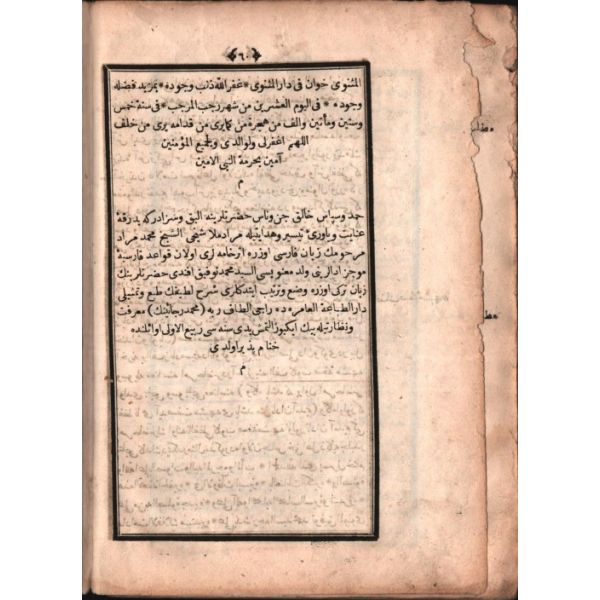 ﴿٦٠﴾
المثنوى خوان فى دار المثنوى * غفر الله ذنب وجوده * بمزيد فضله
وجوده * فى اليوم العشرين من شهر رجب المرجب * فى سنة خمس
وستين ومأتين والف من هجرة من كا يرى من قدامه يرى من خلف
اللهم اغفرلى ولوالدى ولجميع المؤمنين
آمين بحرمة النبى الامين
م
حمد وسپاس خالق جن وناس حضرتلرينه اليق وسزادركه بدرقهٔ
عنايت وياورئ تيسير وهدايتيله مرادملا شيخى الشيخ محمد مراد
مرحومك زبان فارسى اوزره ارخامه لرى اولان قواعد فارسيهٔ
موجز ادالرينى ولد معنويسى السيد محمد توفيق افندى حضرتلرينك
زبان تركى اوزره وضع وترتيب ايتدكلرى شرح لطيفك طبع وتمثيلى
دار الطباعة العامره ده راجئ الطاف ربه (محمد رجائينك) معرفت
ونظارتيله بيك ايكيوز التمش يدى سنه سى ربيع الاولى اوائلنده
ختام پذير اولدى
م